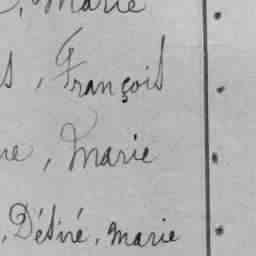 , Marie
, François
, Marie
, Désiré, Marie